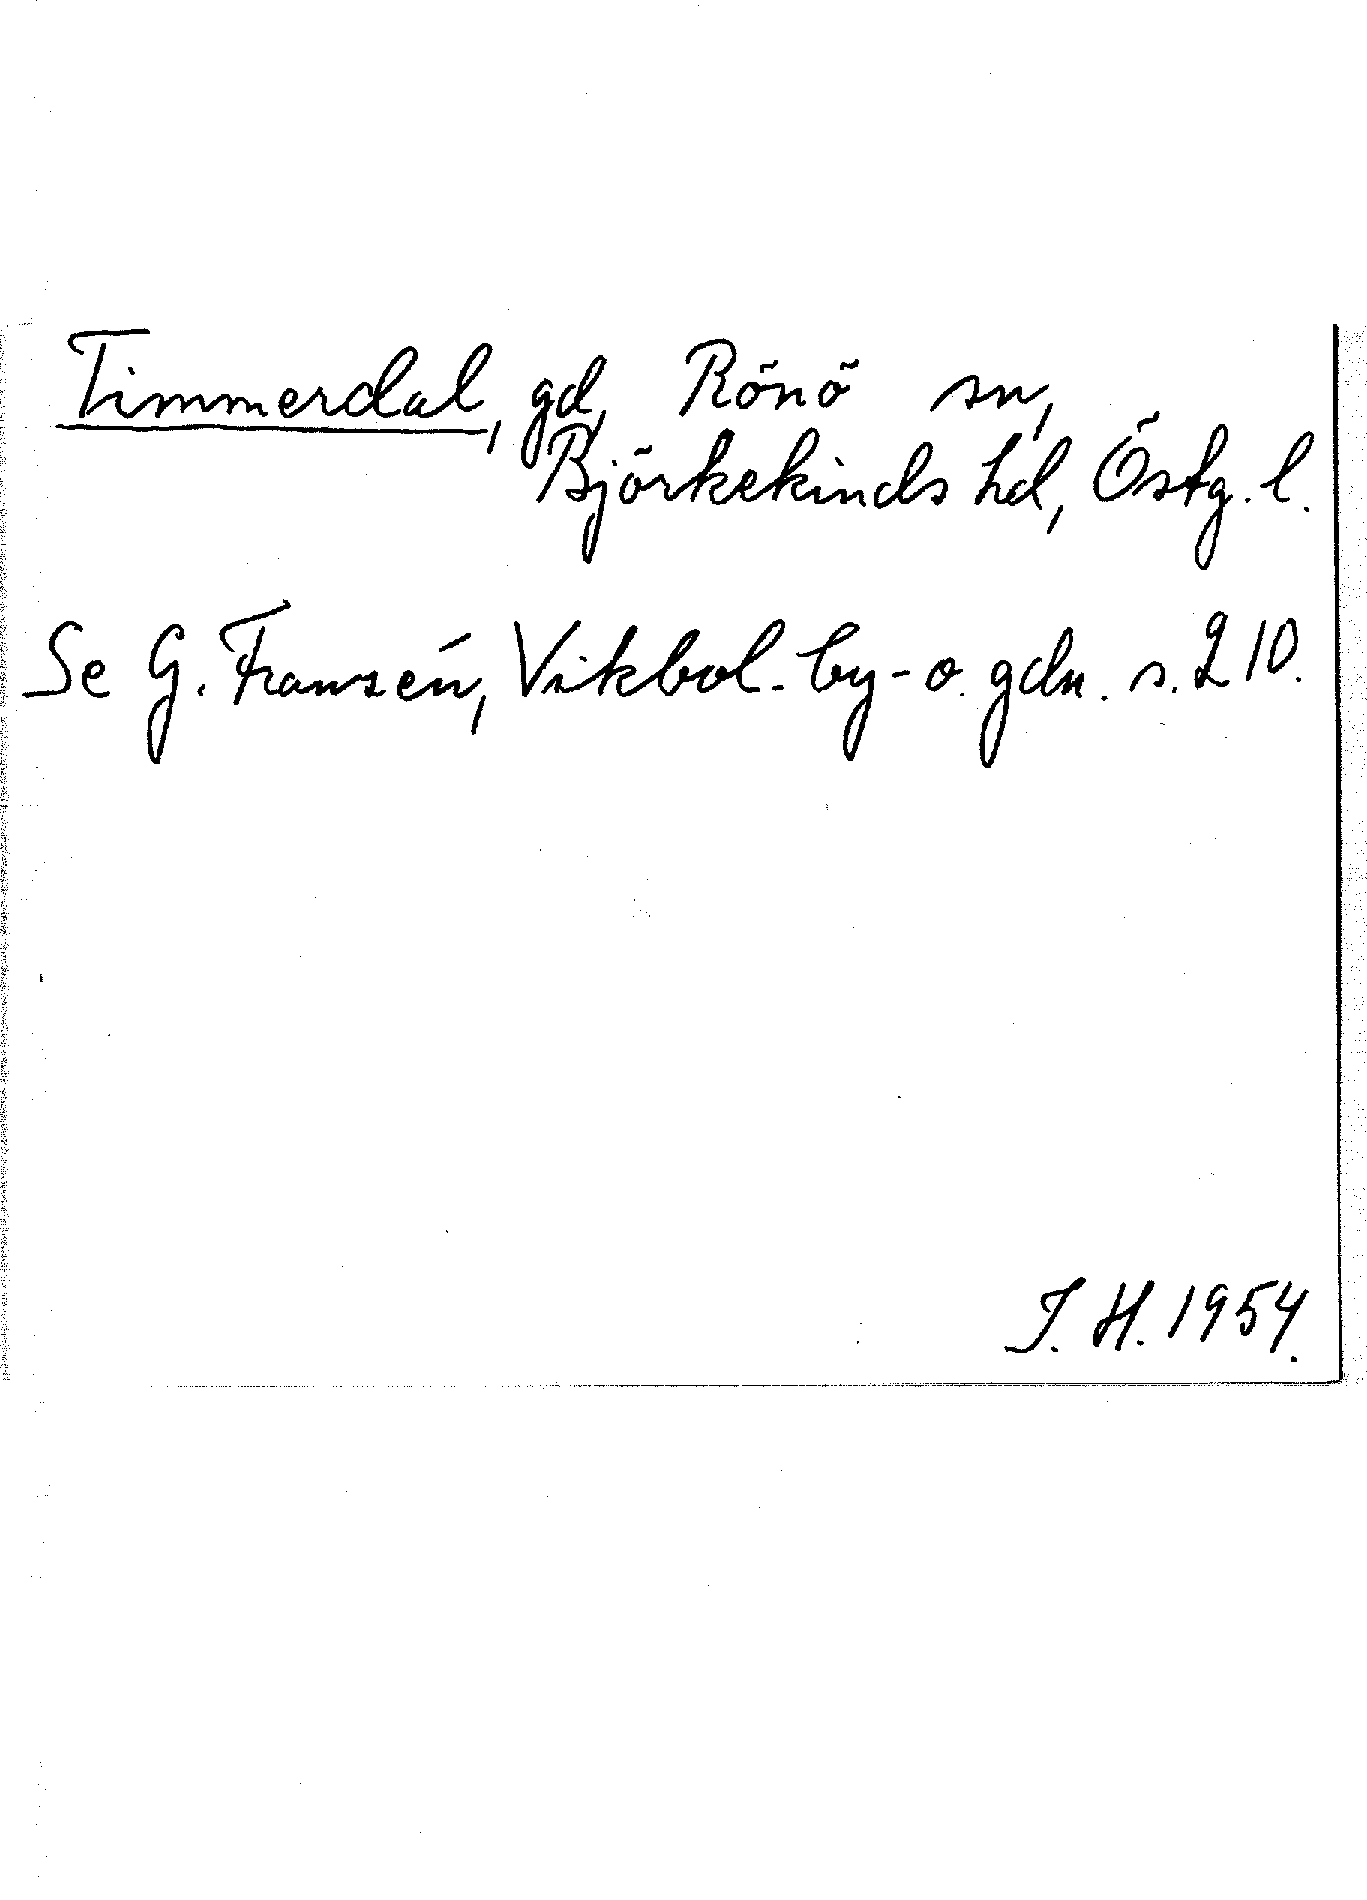 Timmerdal, gd, Rönö sn,
Björkekinds hd, Östg. l.
Se G. Franzén, Vikbol. by- o. gdn. s. 210.
I. H. 1954.